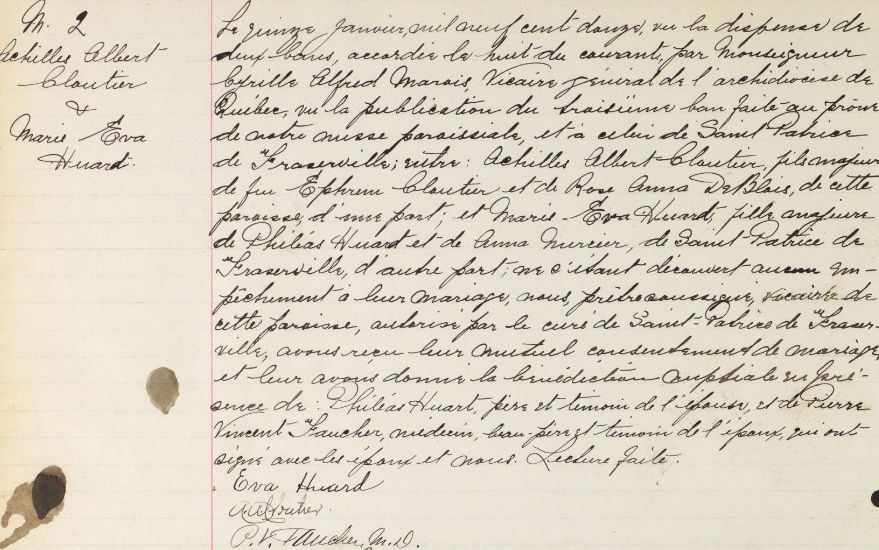 M. 2
Achilles Albert
Cloutier
&
Marie Eva
Huard.
Le quinze janvier, mil neuf cent douze, vu la dispense de
deux bans, accordée le huit du courant, par Monseigneur
Cyrille Alfred Marois, Vicaire général de l'archidiocèse de
Québec, vu la publication du troisième ban faite au prône
de notre messe paroissiale, et à celui de Saint Patrice
de Fraserville; entre: Achilles Albert Cloutier, fils majeur
de feu Ephrem Cloutier et de Rose Anna DeBlois, de cette
paroisse, d'une part; et Marie Eva Huard, fille majeure
de Philéas Huard et de Anna Mercier, de Saint-Patrice de
Fraserville, d'autre part; ne s'étant découvert aucun em-
pêchement à leur mariage, nous, prêtre soussigné, vicaire de
cette paroisse, autorisé par le curé de Saint-Patrice de Fraser-
ville, avons reçu leur mutuel consentement de mariage,
et leur avons donné la bénédiction nuptiale en pré-
sence de: Philéas Huart, père et témoin de l'épouse, et de Pierre
Vincent Faucher, médecin, beau-père et témoin de l'époux, qui ont
signé avec les époux et nous. Lecture faite.
Eva Huard
A. A. Cloutier
P. V. Faucher, M.D.